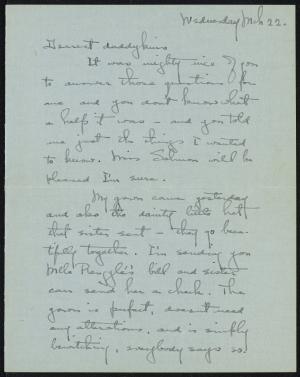 Wednesday Mch 22.
Dearest daddykins
It was mighty nice of you
to answer those questions for
me and you don't know what
a help it was – and you told
me just the things I wanted
to know. Miss Salmon will be
pleased I'm sure.
My gown came yesterday
and also the dainty little hat
that sister sent – they go beau-
tifully together. I'm sending you
Mlle bill and sister
can send her a check. The
gown is perfect, doesn't need
any alterations, and is simply
bewitching, everybody says so.